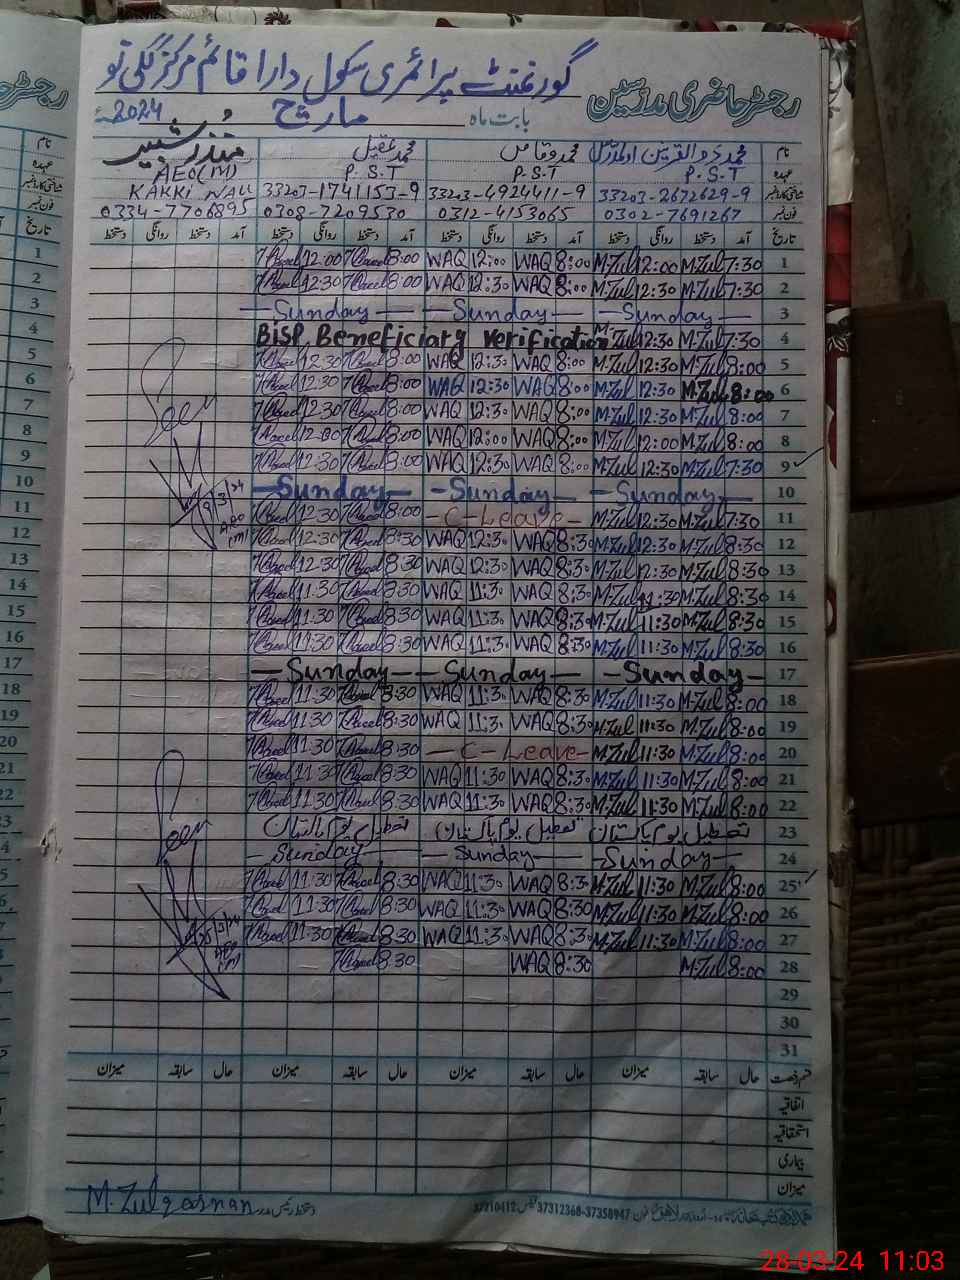 رجسٹر حاضری مدرسین گورنمنٹ پرائمری سکول دارا قائم مرکز ککی نو
بابت ماہ مارچ 2024ء
نام محمد ذوالقرنین محمد وقاص محمد عقیل
عہدہ P.S.T P.S.T P.S.T AEO(M)
شناختی کارڈ نمبر 33203-2672629-9 33203-4924411-9 33203-1741153-9 KAKKi NAU
فون نمبر 0302-7691267 0312-4153065 0308-7209530 0334-7706895
تاریخ آمد دستخط روانگی دستخط آمد دستخط روانگی دستخط آمد دستخط روانگی دستخط آمد دستخط روانگی دستخط
1 7:30 M.Zul 12:00 M.Zul 8:00 WAQ 12:00 WAQ 8:00 12:00
2 7:30 M.Zul 12:30 M.Zul 8:00 WAQ 12:30 WAQ 8:00 12:30
3 — Sunday — — Sunday — — Sunday —
4 7:30 M.Zul 12:30 M.Zul BiSP. Beneficiary verification
5 8:00 M.Zul 12:30 M.Zul 8:00 WAQ 12:30 WAQ 8:00 12:30
6 8:00 M.Zul 12:30 M.Zul 8:00 WAQ 12:30 WAQ 8:00 12:30
7 8:00 M.Zul 12:30 M.Zul 8:00 WAQ 12:30 WAQ 8:00 12:30
8 8:00 M.Zul 12:00 M.Zul 8:00 WAQ 12:00 WAQ 8:00
9 7:30 M.Zul 12:30 M.Zul 8:00 WAQ 12:30 WAQ 8:00 12:30
10 — Sunday — — Sunday — — Sunday —
11 7:30 M.Zul 12:30 M.Zul — C-Leave — 8:00 12:30
12 8:30 M.Zul 12:30 M.Zul 8:30 WAQ 12:30 WAQ 8:30 12:30
13 8:30 M.Zul 12:30 M.Zul 8:30 WAQ 12:30 WAQ 8:30 12:30
14 8:30 M.Zul 11:30 M.Zul 8:30 WAQ 11:30 WAQ 8:30 11:30
15 8:30 M.Zul 11:30 M.Zul 8:30 WAQ 11:30 WAQ 8:30 11:30
16 8:30 M.Zul 11:30 M.Zul 8:30 WAQ 11:30 WAQ 8:30 11:30
17 — Sunday — — Sunday — — Sunday —
18 8:00 M.Zul 11:30 M.Zul 8:30 WAQ 11:30 WAQ 8:30 11:30
19 8:00 M.Zul 11:30 M.Zul 8:30 WAQ 11:30 WAQ 8:30 11:30
20 8:00 M.Zul 11:30 M.Zul — C-Leave — 8:30 11:30
21 8:00 M.Zul 11:30 M.Zul 8:30 WAQ 11:30 WAQ 8:30 11:30
22 8:00 M.Zul 11:30 M.Zul 8:30 WAQ 11:30 WAQ 8:30 11:30
23 تعطیل یوم پاکستان تعطیل یوم پاکستان تعطیل یوم پاکستان
24 — Sunday — — Sunday — — Sunday —
25 8:00 M.Zul 11:30 M.Zul 8:30 WAQ 11:30 WAQ 8:30 11:30
26 8:00 M.Zul 11:30 M.Zul 8:30 WAQ 11:30 WAQ 8:30 11:30
27 8:00 M.Zul 11:30 M.Zul 8:30 WAQ 11:30 WAQ 8:30 11:30
28 8:00 M.Zul 8:30 WAQ 8:30
29
30
31
Seen
AEO
(M)
Seen
AEO
(M)
قسم رخصت حال سابقہ میزان حال سابقہ میزان حال سابقہ میزان حال سابقہ میزان
اتفاقیہ
استحقاقیہ
بیماری
میزان
دستخط رئیس مدرسہ M.Zulqarnan
فون 37358947-37312368 فیکس 37210412
28-03-24 11:03